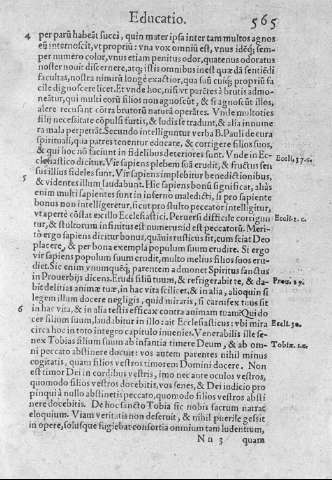 Educatio. 565
4 per parū habeāt succi, quin mater ipsa inter tam multos agnos
eū internoscit, vt propriū: vna vox omniū est, vnus idéq; sem-
per numero color, vnus etiam penitus odor, quatenus odoratus
noster nouit discernere, atq; istis omnibus inest quæ dā sentiēdi
facultas, nostra nimirū longè exactior, qua suū cuiq; propriū fa
cile dignoscere licet. Et vnde hoc, nisi vt parētes à brutis admo-
neātur, qui multi eorū filios non agnoscūt, & si agnoscūt illos,
alere recusant cōtra brutorū naturā operātes. Vnde multoties
filij necessitate cōpulsi furtis, & ludis se tradunt, & alia innume
ra mala perpetrāt. Secundo intelliguntur verba B. Pauli de cura
spirituali, qua patres tenentur educare, & corrigere filios suos,
& qui hoc nō faciunt in fidelibus deteriores sunt. Vnde in Ec- Eccli. 37. 6.
clesiastico dicitur. Vir sapiens plebem suā erudit, & fructus sen-
sus illius fideles sunt. Vir sapiens implebitur benedictionibus,
5 & videntes illum laudabunt. Hic sapiens bonū significat, aliàs
enim multi sapientes sunt in inferno maledicti, si pro sapiente
bonus non intelligeretur, sicut pro stulto peccator intelligitur,
vt apertè cōstat ex illo Ecclesiastici. Peruersi difficile corrigūn Eccli. 1. c.
tur, & stultorum infinitus est numerus id est peccatorū. Meri-
tò ergo sapiens dicitur bonus, quāuis rusticus sit, cum sciat Deo
placere, & per bona exempla populum suum erudire. Si ergo
vir sapiens populum suum erudit, multo melius filios suos eru-
diet. Sic enim vnumquēq; parentem admonet Spiritus sanctus
in Prouerbijs dicens. Erudi filiū tuum, & refrigerabit te, & da- Prou. 29.
bit delitias animæ tuæ, in hac vita scilicet, & in alia, alioquin si
legem illum docere negligis, quid miraris, si carnifex tuus sit
6 in hac vita, & in alia testis efficax contra animam tuam? Qui do
cet filium suum, laudabitur in illo: ait Ecclesiasticus: vbi mira Eccli. 30.
circa hoc in toto integro capitulo inuenies. Venerabilis ille se-
nex Tobias filium suum ab infantia timere Deum, & ab om- Tobiæ. 1. c.
ni peccato abstinere docuit: vos autem parentes nihil minus
cogitatis, quam filios vestros timorem Domini docere. Non
est timor Dei in cordibus vestris, imo nec ante oculos vestros,
quomodo filios vestros docebitis, vos senes, & Dei iudicio pro
pinqui à nullo abstinetis peccato, quomodo filios vestros absti
nere docebitis. De hoc sancto Tobia sic nobis sacrum narrat
eloquium. Viam veritatis non deseruit, & nihil puerile gessit
in opere, solusque fugiebat consortia omnium tam ludentium,
N n 3 quam